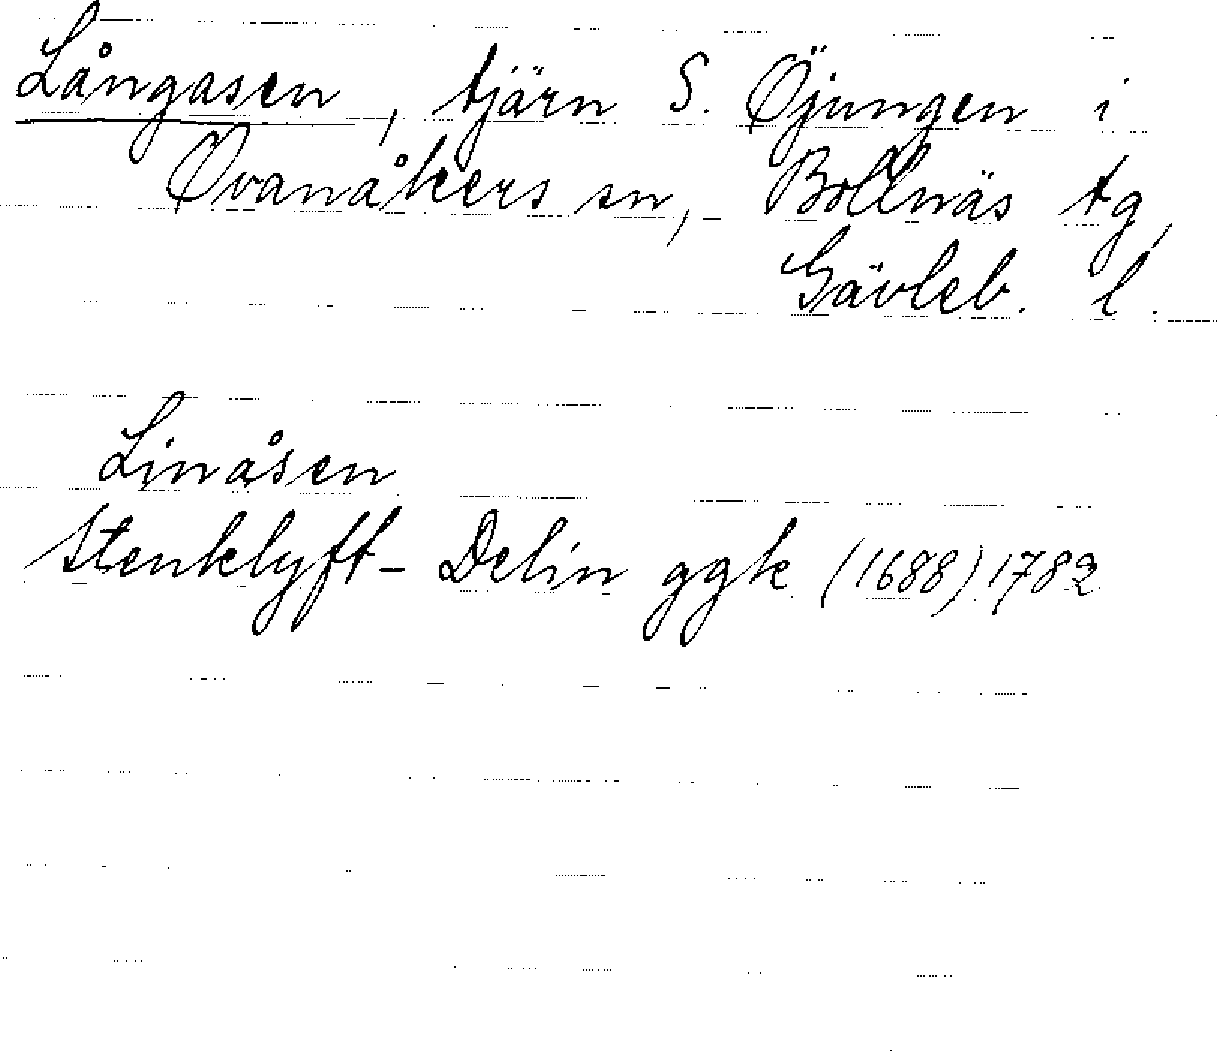 Långasen, tjärn S. Öjungen i
Ovanåkers sn, Bollnäs tg,
Gävleb. l.
Linåsen
Stenklyft-Delin ggk (1688) 1782